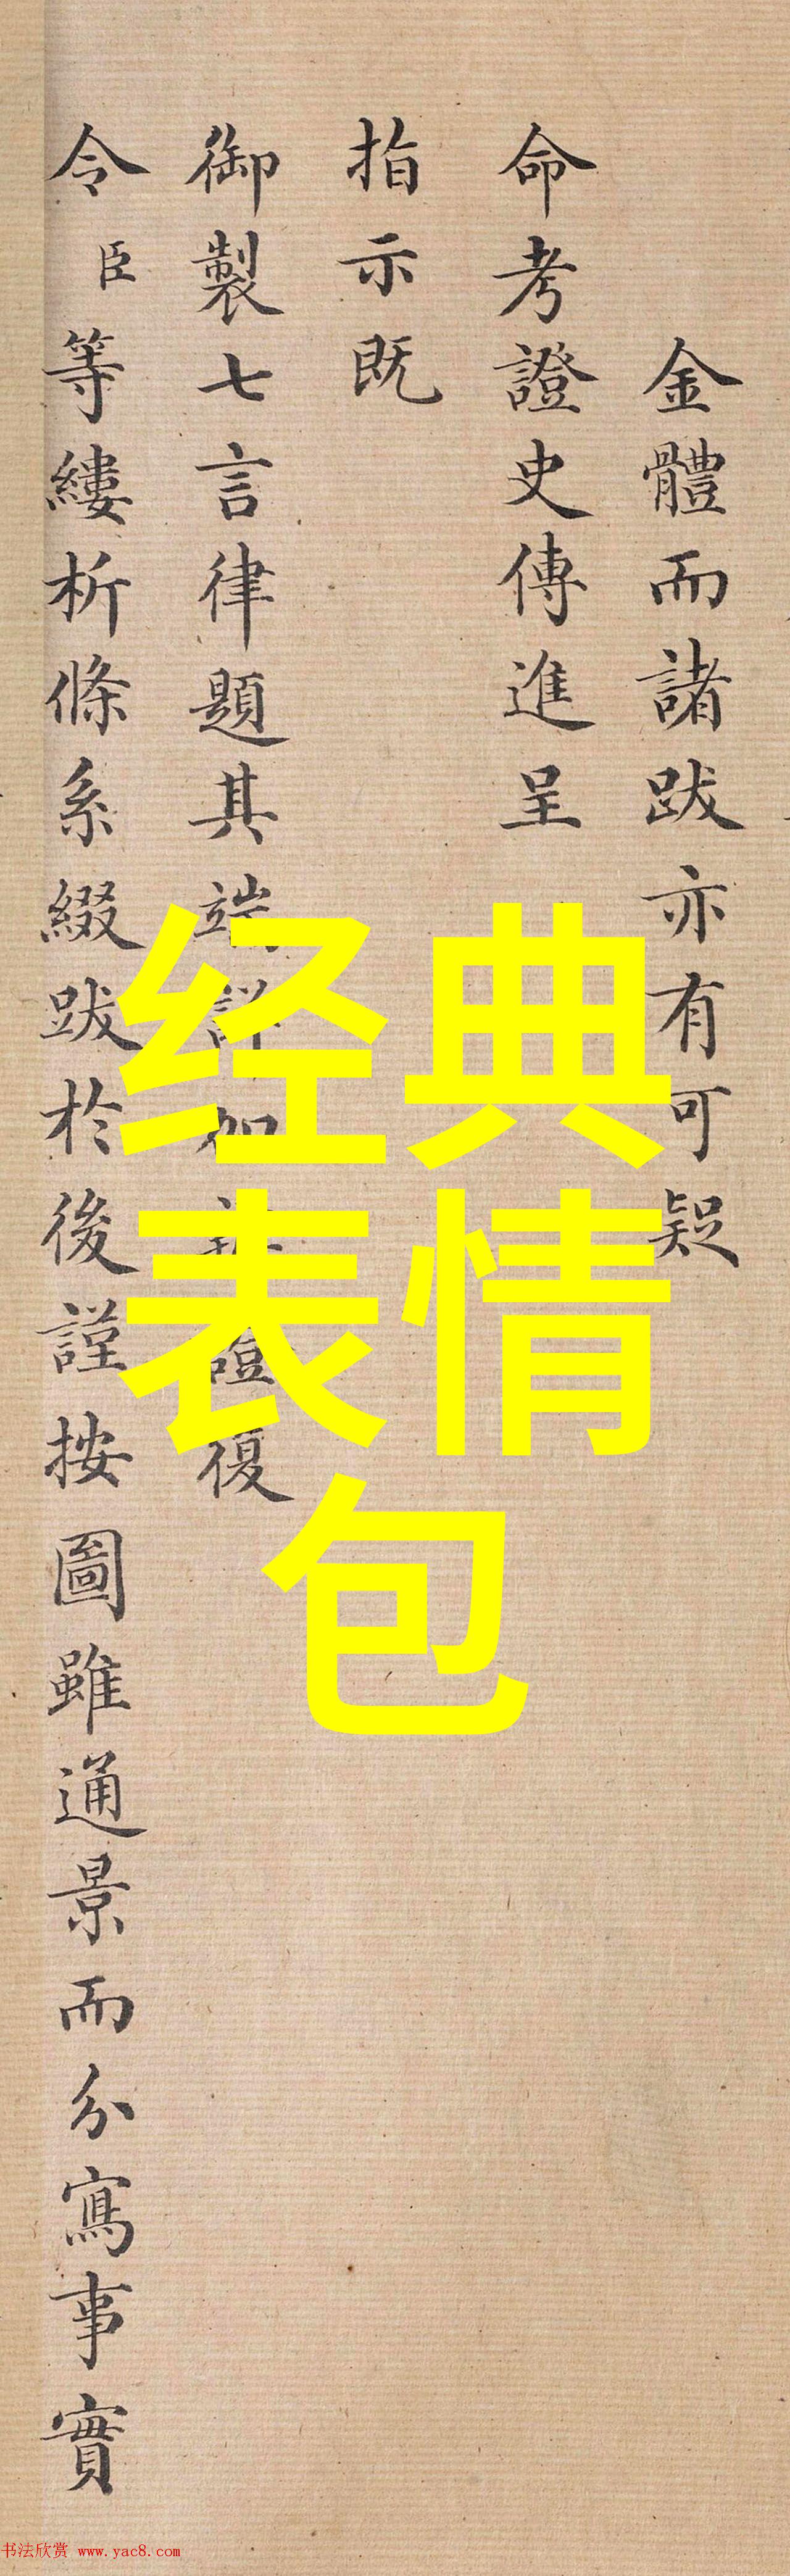 金體而諸跋亦有可疑
命考證史傳進呈
指示既
御製七言律題其端詳加證復
令臣等縷析條系綴跋於後謹按圖雖通景而分寫事實
经典
表情
包
书法欣赏 www.yac8.com